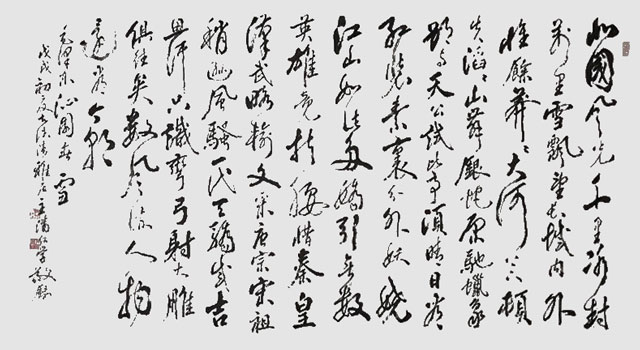 北國風光千里冰封
萬里雪飄望長城内外
惟餘莽〻大河上下頓
失滔〻山舞銀蛇原馳蠟象
欲与天公試比高須晴日看
红装素裹分外妖娆
江山如此多嬌引无數
英雄竞折腰惜秦皇
漢武略输文采唐宗宋祖
稍逊風騷一代天驕成吉
思汗只識彎弓射大雕
俱往矣數風流人物
還看今朝
毛澤東沁園春雪
戊戌初夏